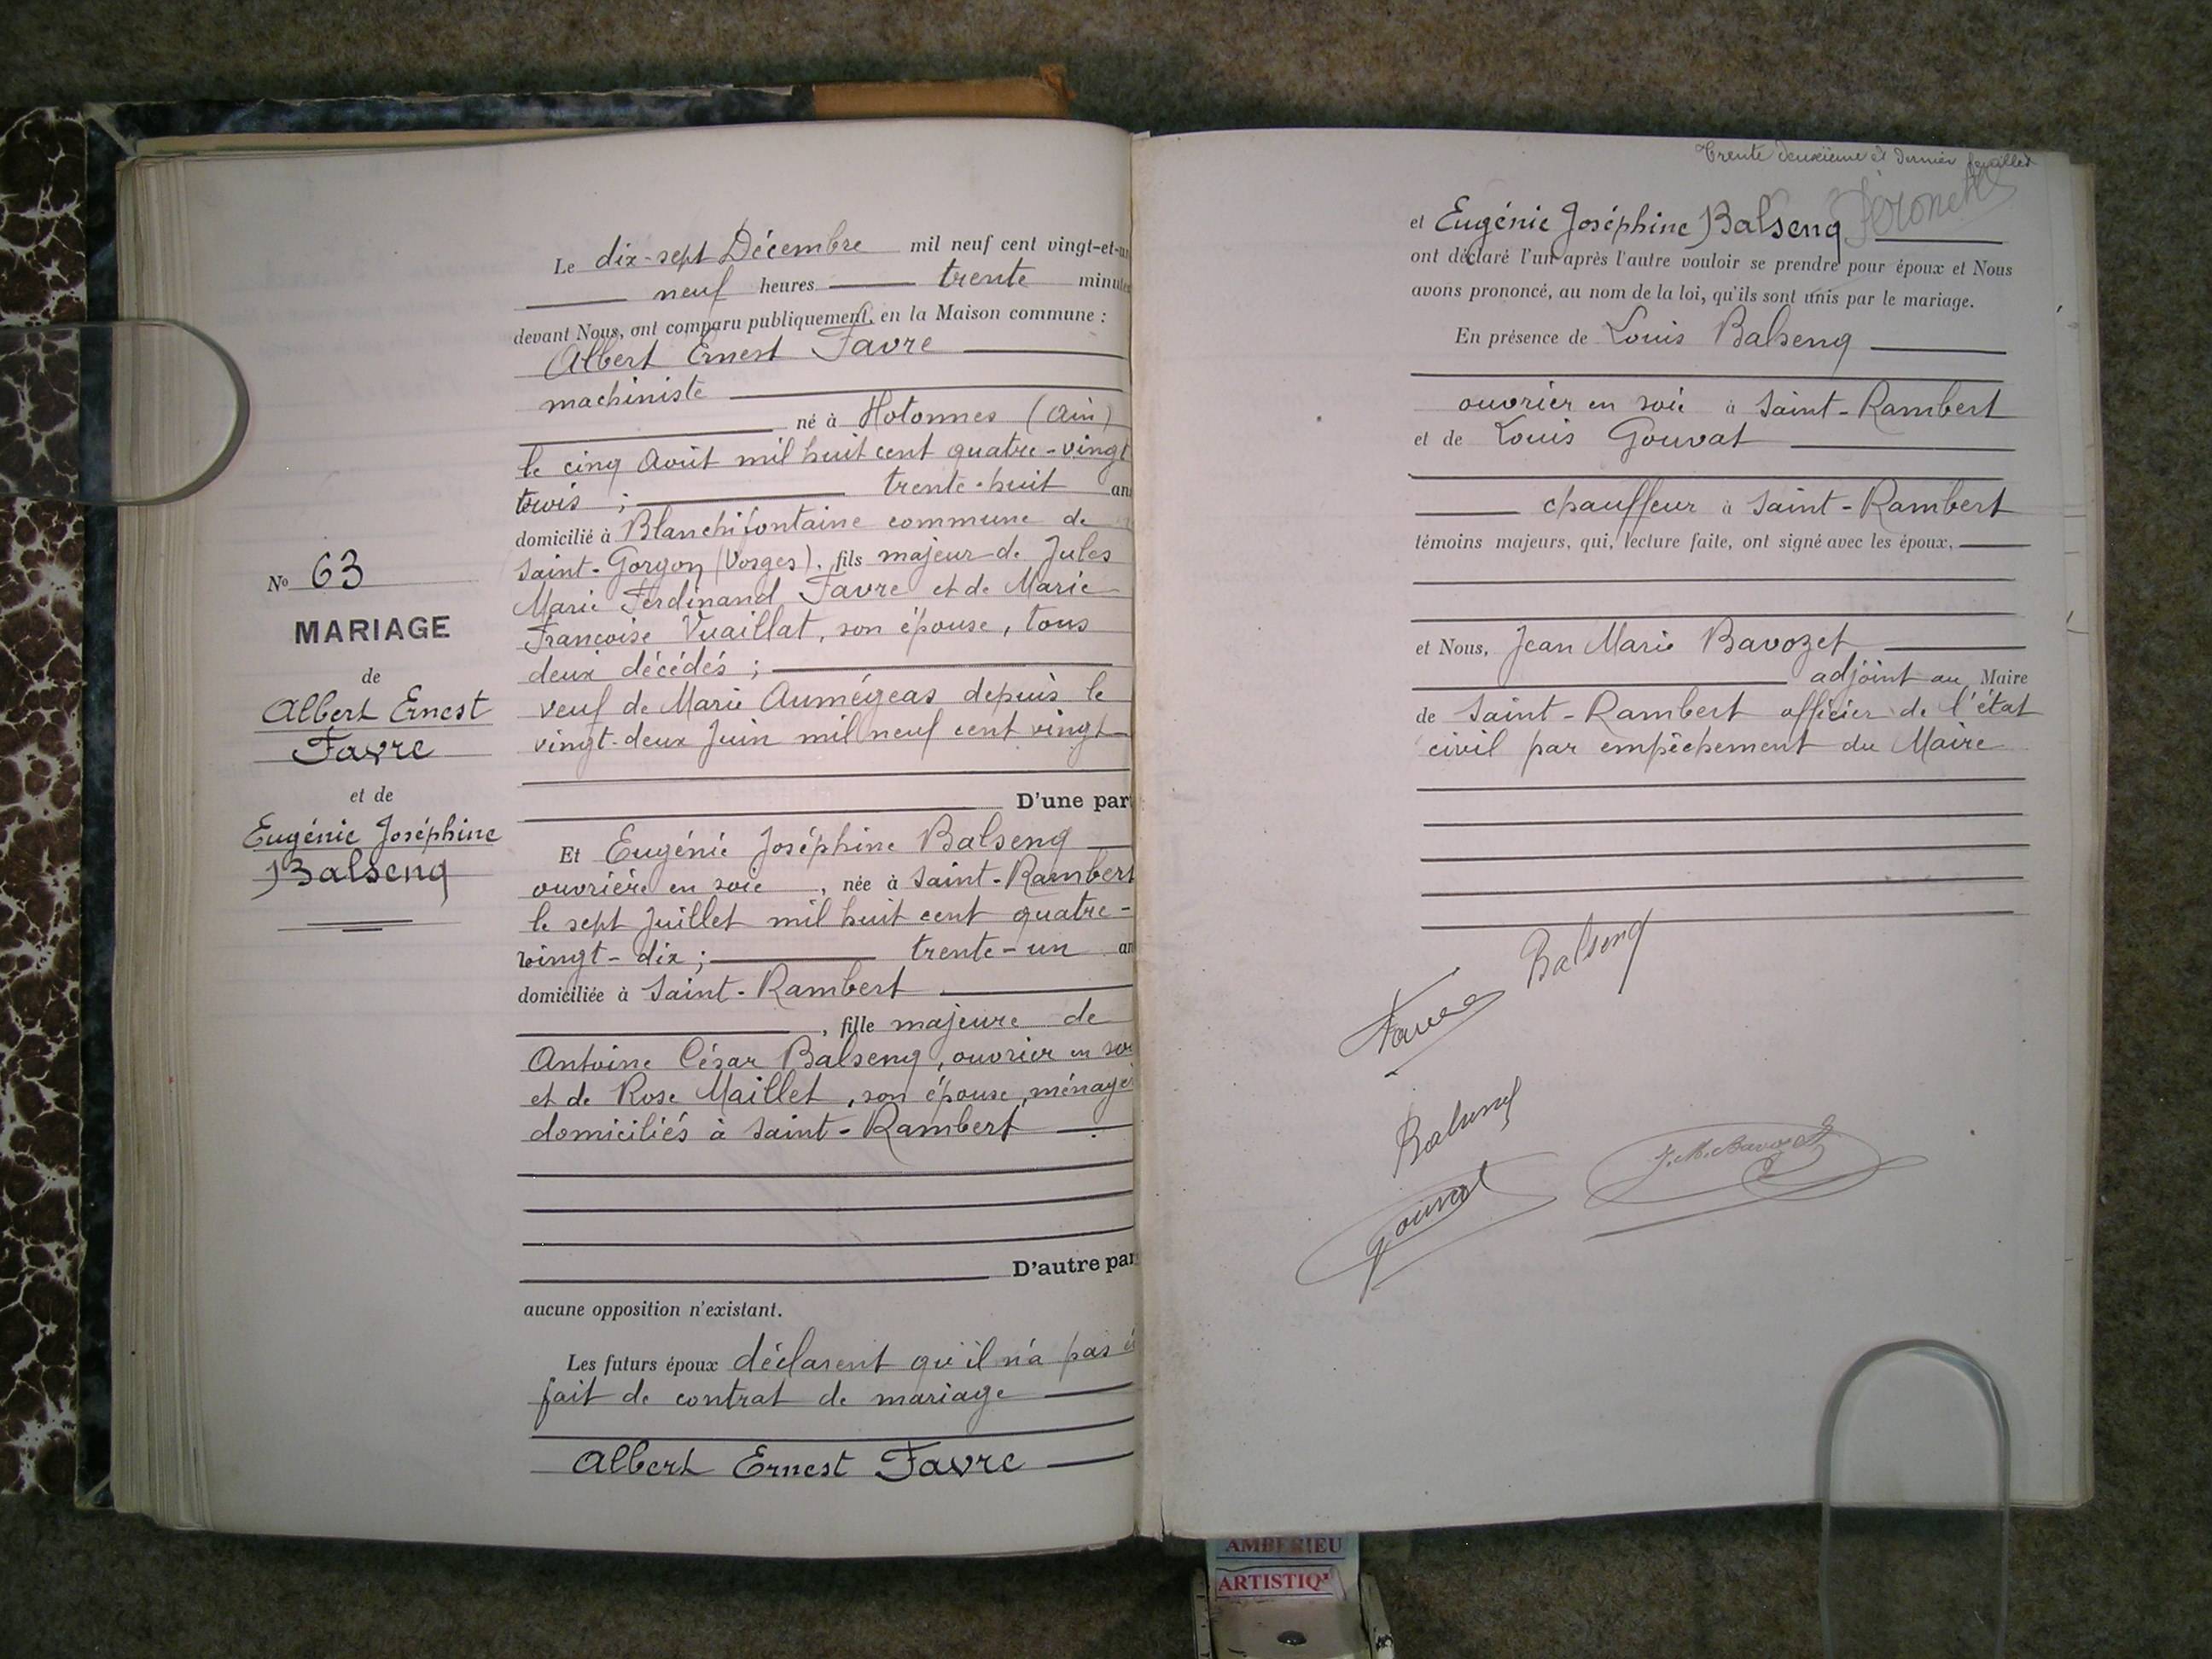 N° 63
MARIAGE
de
Albert Ernest
Favre
et de
Eugénie Joséphine
Balseng
Le dix-sept Décembre mil neuf cent vingt-et-un
neuf heures trente minutes
devant Nous, ont comparu publiquement, en la Maison commune :
Albert Ernest Favre
machiniste
né à Hotonnes (Ain)
le cinq Août mil huit cent quatre-vingt
trois ; trente-huit ans
domicilié à Blanchifontaine commune de
Saint-Gorgon (Vosges). fils majeur de Jules
Marie Ferdinand Favre et de Marie
Françoise Vuaillat, son épouse, tous
deux décédés ;
veuf de Marie Aumégeas depuis le
vingt-deux Juin mil neuf cent vingt
D'une part
Et Eugénie Joséphine Balseng
ouvrière en soie, née à Saint-Rambert
le sept Juillet mil huit cent quatre-
vingt-dix ; trente-un an
domiciliée à Saint-Rambert
, fille majeure de
Antoine César Balseng, ouvrier en soi
et de Rose Maillet, son épouse, ménagè
domiciliés à Saint-Rambert
D'autre part
aucune opposition n'existant.
Les futurs époux déclarent qu'il n'a pas é
fait de contrat de mariage
Albert Ernest Favre
Trente deuxième et dernier feuillet
et Eugénie Joséphine Balseng
ont déclaré l'un après l'autre vouloir se prendre pour époux et Nous
avons prononcé, au nom de la loi, qu'ils sont unis par le mariage.
En présence de Louis Balseng
ouvrier en soie à Saint-Rambert
et de Louis Gouvat
chauffeur à Saint-Rambert
témoins majeurs, qui, lecture faite, ont signé avec les époux,
et Nous, Jean Marie Bavozet
adjoint au Maire
de Saint-Rambert officier de l'état
civil par empêchement du Maire
Favre Balseng
Balseng
Gouvat
J. M. Bavozet
AMBERIEU
ARTISTIQ